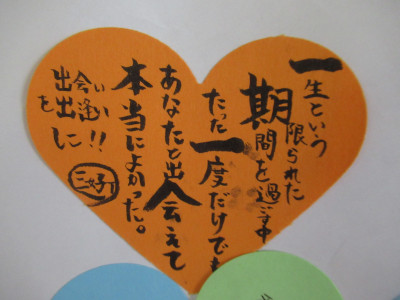 一生という
限られた
期間を過ごす中
たった一度だけでも
あなたと出会えて
本当によかった。
出会いを
出逢いに!!
三好